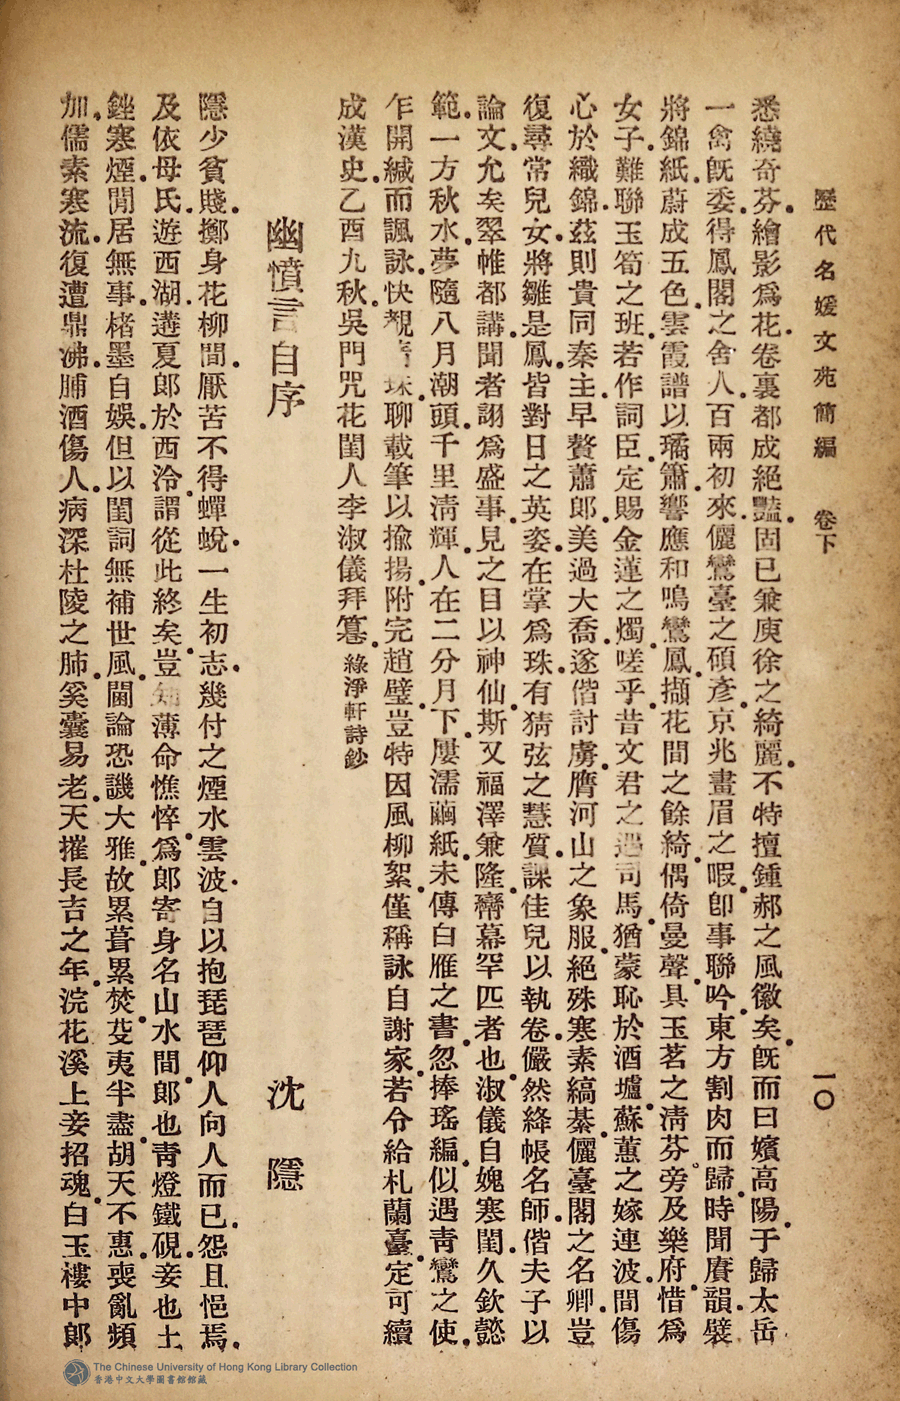 歷代名媛文苑簡編 卷下 一〇
悉繞奇芬。繪影爲花。卷裏都成絕豔。固已兼庾徐之綺麗。不特擅鍾郝之風徽矣。旣而曰嬪高陽。于歸太岳
一禽旣委。得鳳閣之舍人。百兩初來。儷鸞臺之碩彥。京兆畫眉之暇。卽事聯吟。東方割肉而歸。時聞賡韻。襞
將錦紙。蔚成五色雲霞。譜以璚簫。響應和鳴鸞鳳。擷花間之餘綺。偶倚曼聲。具玉茗之淸芬。旁及樂府。惜爲
女子。難聯玉筍之班。若作詞臣。定賜金蓮之燭。嗟乎。昔文君之遇司馬。猶蒙恥於酒壚。蘇蕙之嫁連波。間傷
心於織錦。茲則貴同秦主。早贅蕭郎。美過大喬。遂偕討虜。膺河山之象服。絕殊寒素縞綦。儷臺閣之名卿。豈
復尋常兒女。將雛是鳳。皆對日之英姿。在掌爲珠。有猜弦之慧質。課佳兒以執卷。儼然絳帳名師。偕夫子以
論文。允矣翠帷都講。聞者詡爲盛事。見之目以神仙。斯又福澤兼隆。礬幕罕匹者也。淑儀自媿寒閨。久欽懿
範。一方秋水。夢隨八月潮頭。千里淸輝。人在二分月下。屢濡繭紙。未傳白雁之書。忽捧瑤編。似遇靑鸞之使。
乍開緘而諷詠。快覩珠。聊載筆以揄揚。附完趙璧。豈特因風柳絮。僅稱詠自謝家。若令給札蘭臺。定可續
成漢史。乙酉九秋。吳門咒花閨人李淑儀拜篹。綠淨軒詩鈔
幽憤言自序 沈隱
隱少貧賤。擲身花柳間。厭苦不得蟬蛻。一生初志。幾付之煙水雲波。自以抱琵琶仰人向人而已。怨且悒焉。
及依母氏。遊西湖。遘夏郎於西泠。謂從此終矣。豈知薄命憔悴。爲郎寄身名山水間。郎也靑燈鐵硯。妾也土
銼寒煙。閒居無事。楮墨自娛。但以閨詞無補世風。閫論恐譏大雅。故累葺累焚。芟夷半盡。胡天不惠。喪亂頻
加。儒素寒流。復遭鼎沸。脯酒傷人。病深杜陵之肺。奚囊易老。天摧長吉之年。浣花溪上。妾招魂。白玉樓中。郎
The Chinese University of Hong Kong Library Collection
香港中文大學圖書館館藏